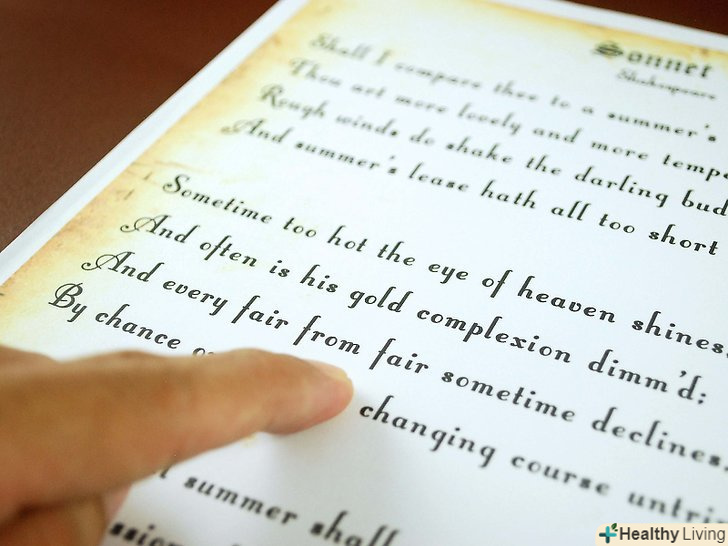 Sonnet
Shakespeare
Shall I compare thee to a summer's
Thou art more lovely and more tempe
Rough winds do shake the darling bud
And summer's lease hath all too short
Sometime too hot the eye of heaven shines,
And often is his gold complexion dimm'd;
And every fair from fair sometime declines,
By chance changing course untri
summer shall
ssion
Healthy Living